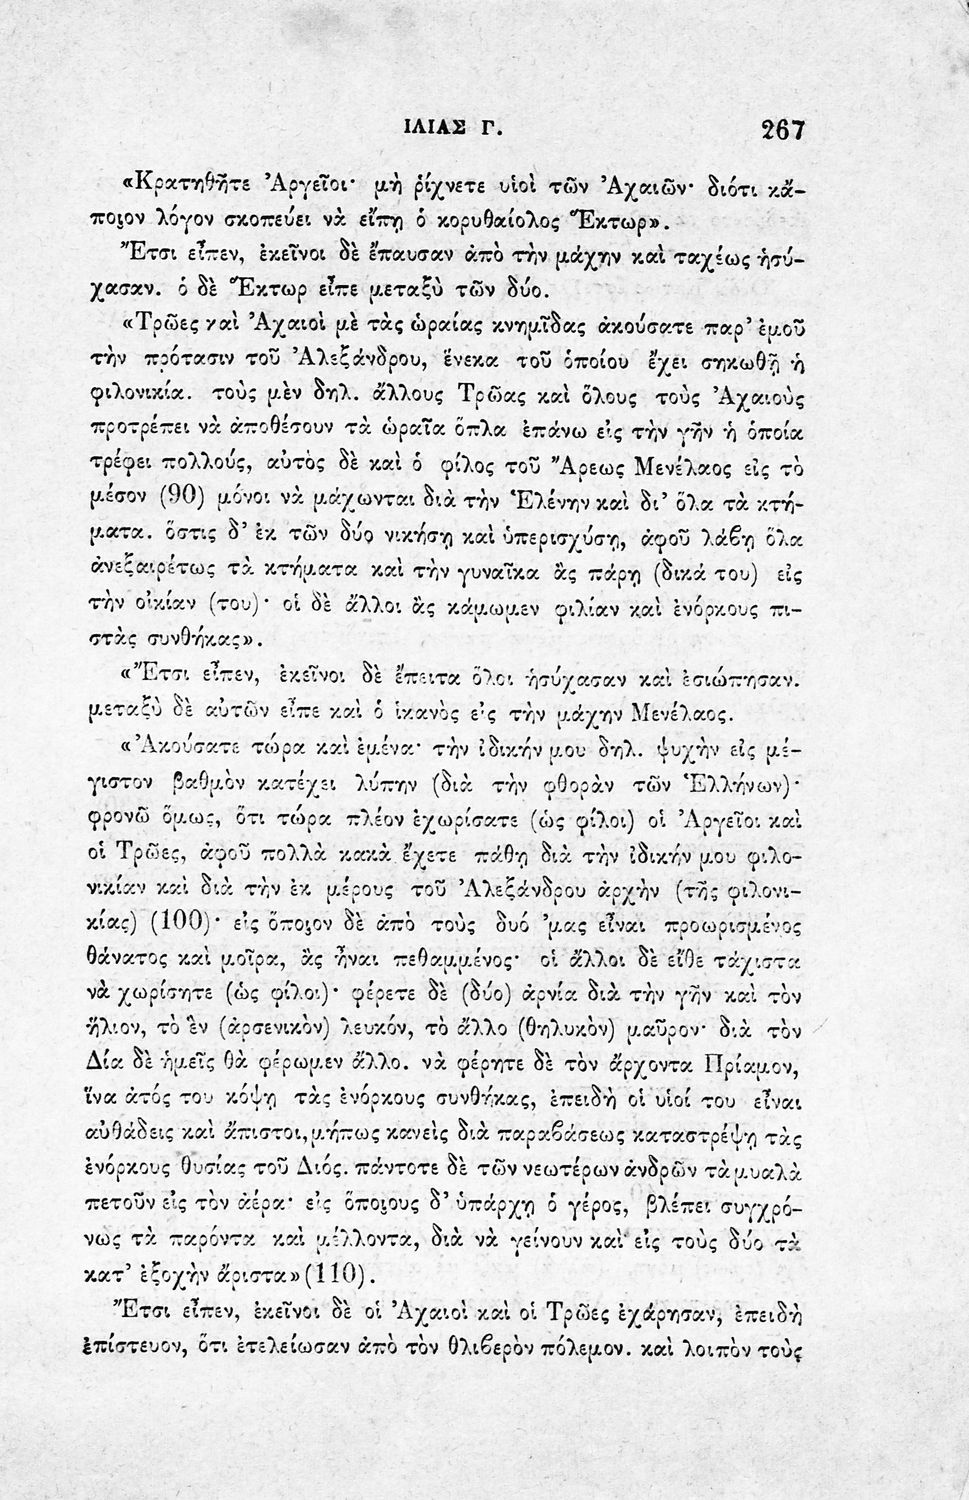 ΙΛΙΑΣ Γ. 267
«Κρατηθῆτε Ἀργεῖοι· μὴ ῥίχνετε υἱοὶ τῶν Ἀχαιῶν· διότι κἄ-
ποιον λόγον σκοπεύει νὰ εἴπῃ ὁ κορυθαίολος Ἕκτωρ».
Ἔτσι εἶπεν, ἐκεῖνοι δὲ ἔπαυσαν ἀπὸ τὴν μάχην καὶ ταχέως ἡσύ-
χασαν. ὁ δὲ Ἕκτωρ εἶπε μεταξὺ τῶν δύο.
«Τρῶες καὶ Ἀχαιοὶ μὲ τὰς ὡραίας κνημῖδας ἀκούσατε παρ' ἐμοῦ
τὴν πρότασιν τοῦ Ἀλεξάνδρου, ἕνεκα τοῦ ὁποίου ἔχει σηκωθῆ ἡ
φιλονικία. τοὺς μὲν δηλ. ἄλλους Τρῶας καὶ ὅλους τοὺς Ἀχαιοὺς
προτρέπει νὰ ἀποθέσουν τὰ ὡραῖα ὅπλα ἐπάνω εἰς τὴν γῆν ἡ ὁποία
τρέφει πολλούς, αὐτὸς δὲ καὶ ὁ φίλος τοῦ Ἄρεως Μενέλαος εἰς τὸ
μέσον (90) μόνοι νὰ μάχωνται διὰ τὴν Ἑλένην καὶ δι' ὅλα τὰ κτή-
ματα. ὅστις δ' ἐκ τῶν δύο νικήσῃ καὶ ὑπερισχύσῃ, ἀφοῦ λάβῃ ὅλα
ἀνεξαιρέτως τὰ κτήματα καὶ τὴν γυναῖκα ἂς πάρῃ (δικά του) εἰς
τὴν οἰκίαν (του)· οἱ δὲ ἄλλοι ἂς κάμωμεν φιλίαν καὶ ἐνόρκους πι-
στὰς συνθήκας».
«Ἔτσι εἶπεν, ἐκεῖνοι δὲ ἔπειτα ὅλοι ἡσύχασαν καὶ ἐσιώπησαν.
μεταξὺ δὲ αὐτῶν εἶπε καὶ ὁ ἱκανὸς εἰς τὴν μάχην Μενέλαος.
«Ἀκούσατε τώρα καὶ ἐμένα· τὴν ἰδικήν μου δηλ. ψυχὴν εἰς μέ-
γιστον βαθμὸν κατέχει λύπην (διὰ τὴν φθορὰν τῶν Ἑλλήνων)·
φρονῶ ὅμως, ὅτι τώρα πλέον ἐχωρίσατε (ὡς φίλοι) οἱ Ἀργεῖοι καὶ
οἱ Τρῶες, ἀφοῦ πολλὰ κακὰ ἔχετε πάθῃ διὰ τὴν ἰδικήν μου φιλο-
νικίαν καὶ διὰ τὴν ἐκ μέρους τοῦ Ἀλεξάνδρου ἀρχὴν (τῆς φιλονι-
κίας) (100)· εἰς ὅποιον δὲ ἀπὸ τοὺς δυό 'μας εἶναι προωρισμένος
θάνατος καὶ μοῖρα, ἂς ἦναι πεθαμμένος· οἱ ἄλλοι δὲ εἴθε τάχιστα
νὰ χωρίσητε (ὡς φίλοι)· φέρετε δὲ (δύο) ἀρνία διὰ τὴν γῆν καὶ τὸν
ἥλιον, τὸ ἓν (ἀρσενικὸν) λευκόν, τὸ ἄλλο (θηλυκὸν) μαῦρον· διὰ τὸν
Δία δὲ ἡμεῖς θὰ φέρωμεν ἄλλο. νὰ φέρητε δὲ τὸν ἄρχοντα Πρίαμον,
ἵνα ἀτός του κόψῃ τὰς ἐνόρκους συνθήκας, ἐπειδὴ οἱ υἱοί του εἶναι
αὐθάδεις καὶ ἄπιστοι, μήπως κανεὶς διὰ παραβάσεως καταστρέψῃ τὰς
ἐνόρκους θυσίας τοῦ Διός. πάντοτε δὲ τῶν νεωτέρων ἀνδρῶν τὰ μυαλὰ
πετοῦν εἰς τὸν ἀέρα· εἰς ὅποιους δ' ὑπάρχῃ ὁ γέρος, βλέπει συγχρό-
νως τὰ παρόντα καὶ μέλλοντα, διὰ νὰ γείνουν καὶ εἰς τοὺς δύο τὰ
κατ' ἐξοχὴν ἄριστα» (110).
Ἔτσι εἶπεν, ἐκεῖνοι δὲ οἱ Ἀχαιοὶ καὶ οἱ Τρῶες ἐχάρησαν, ἐπειδὴ
ἐπίστευον, ὅτι ἐτελείωσαν ἀπὸ τὸν θλιβερὸν πόλεμον. καὶ λοιπὸν τοὺς